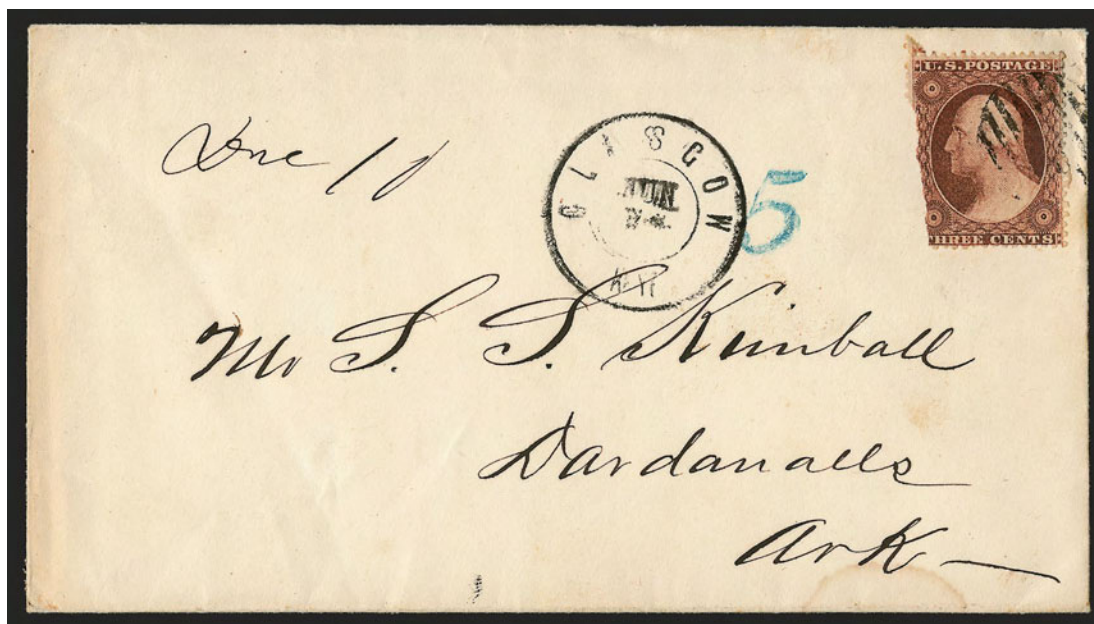 U.S.POSTAGE
THREE CENTS
Due 10
GLASGOW
JUN
KY
5
Mr S. S. Kimball
Dardanalls
Ark